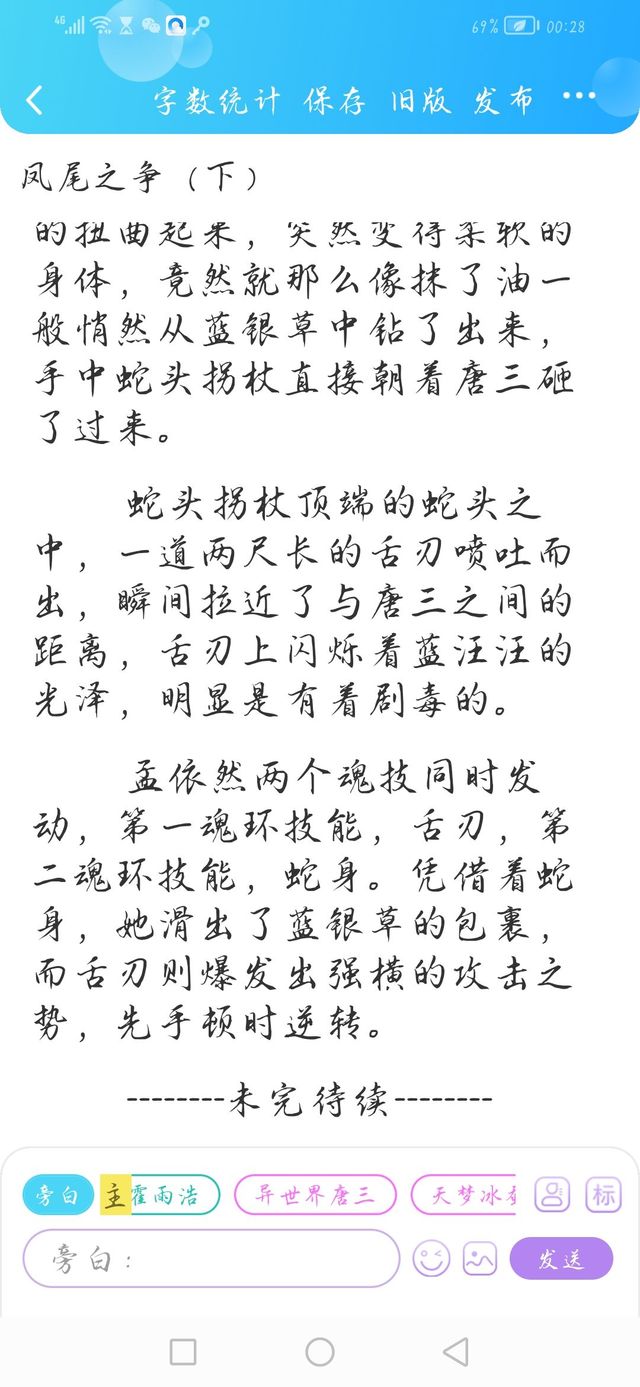 4G
69%
00:28
字数统计 保存 旧版 发布 ...
凤尾之争（下）
的扭曲起来，突然变得柔软的
身体，竟然就那么像抹了油一
般悄然从蓝银草中钻了出来，
手中蛇头拐杖直接朝着唐三砸
了过来。
蛇头拐杖顶端的蛇头之
中，一道两尺长的舌刃喷吐而
出，瞬间拉近了与唐三之间的
距离，舌刃上闪烁着蓝汪汪的
光泽，明显是有着剧毒的。
孟依然两个魂技同时发
动，第一魂环技能，舌刃，第
二魂环技能，蛇身。凭借着蛇
身，她滑出了蓝银草的包裹，
而舌刃则爆发出强横的攻击之
势，先手顿时逆转。
--------未完待续--------
旁白 主 霍雨浩 异世界唐三 天梦冰 标
旁白：
发送